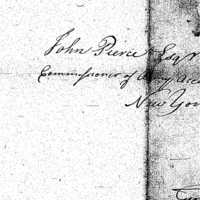 John Pierce Esqr
Commissioner of Army Acc
New Yor